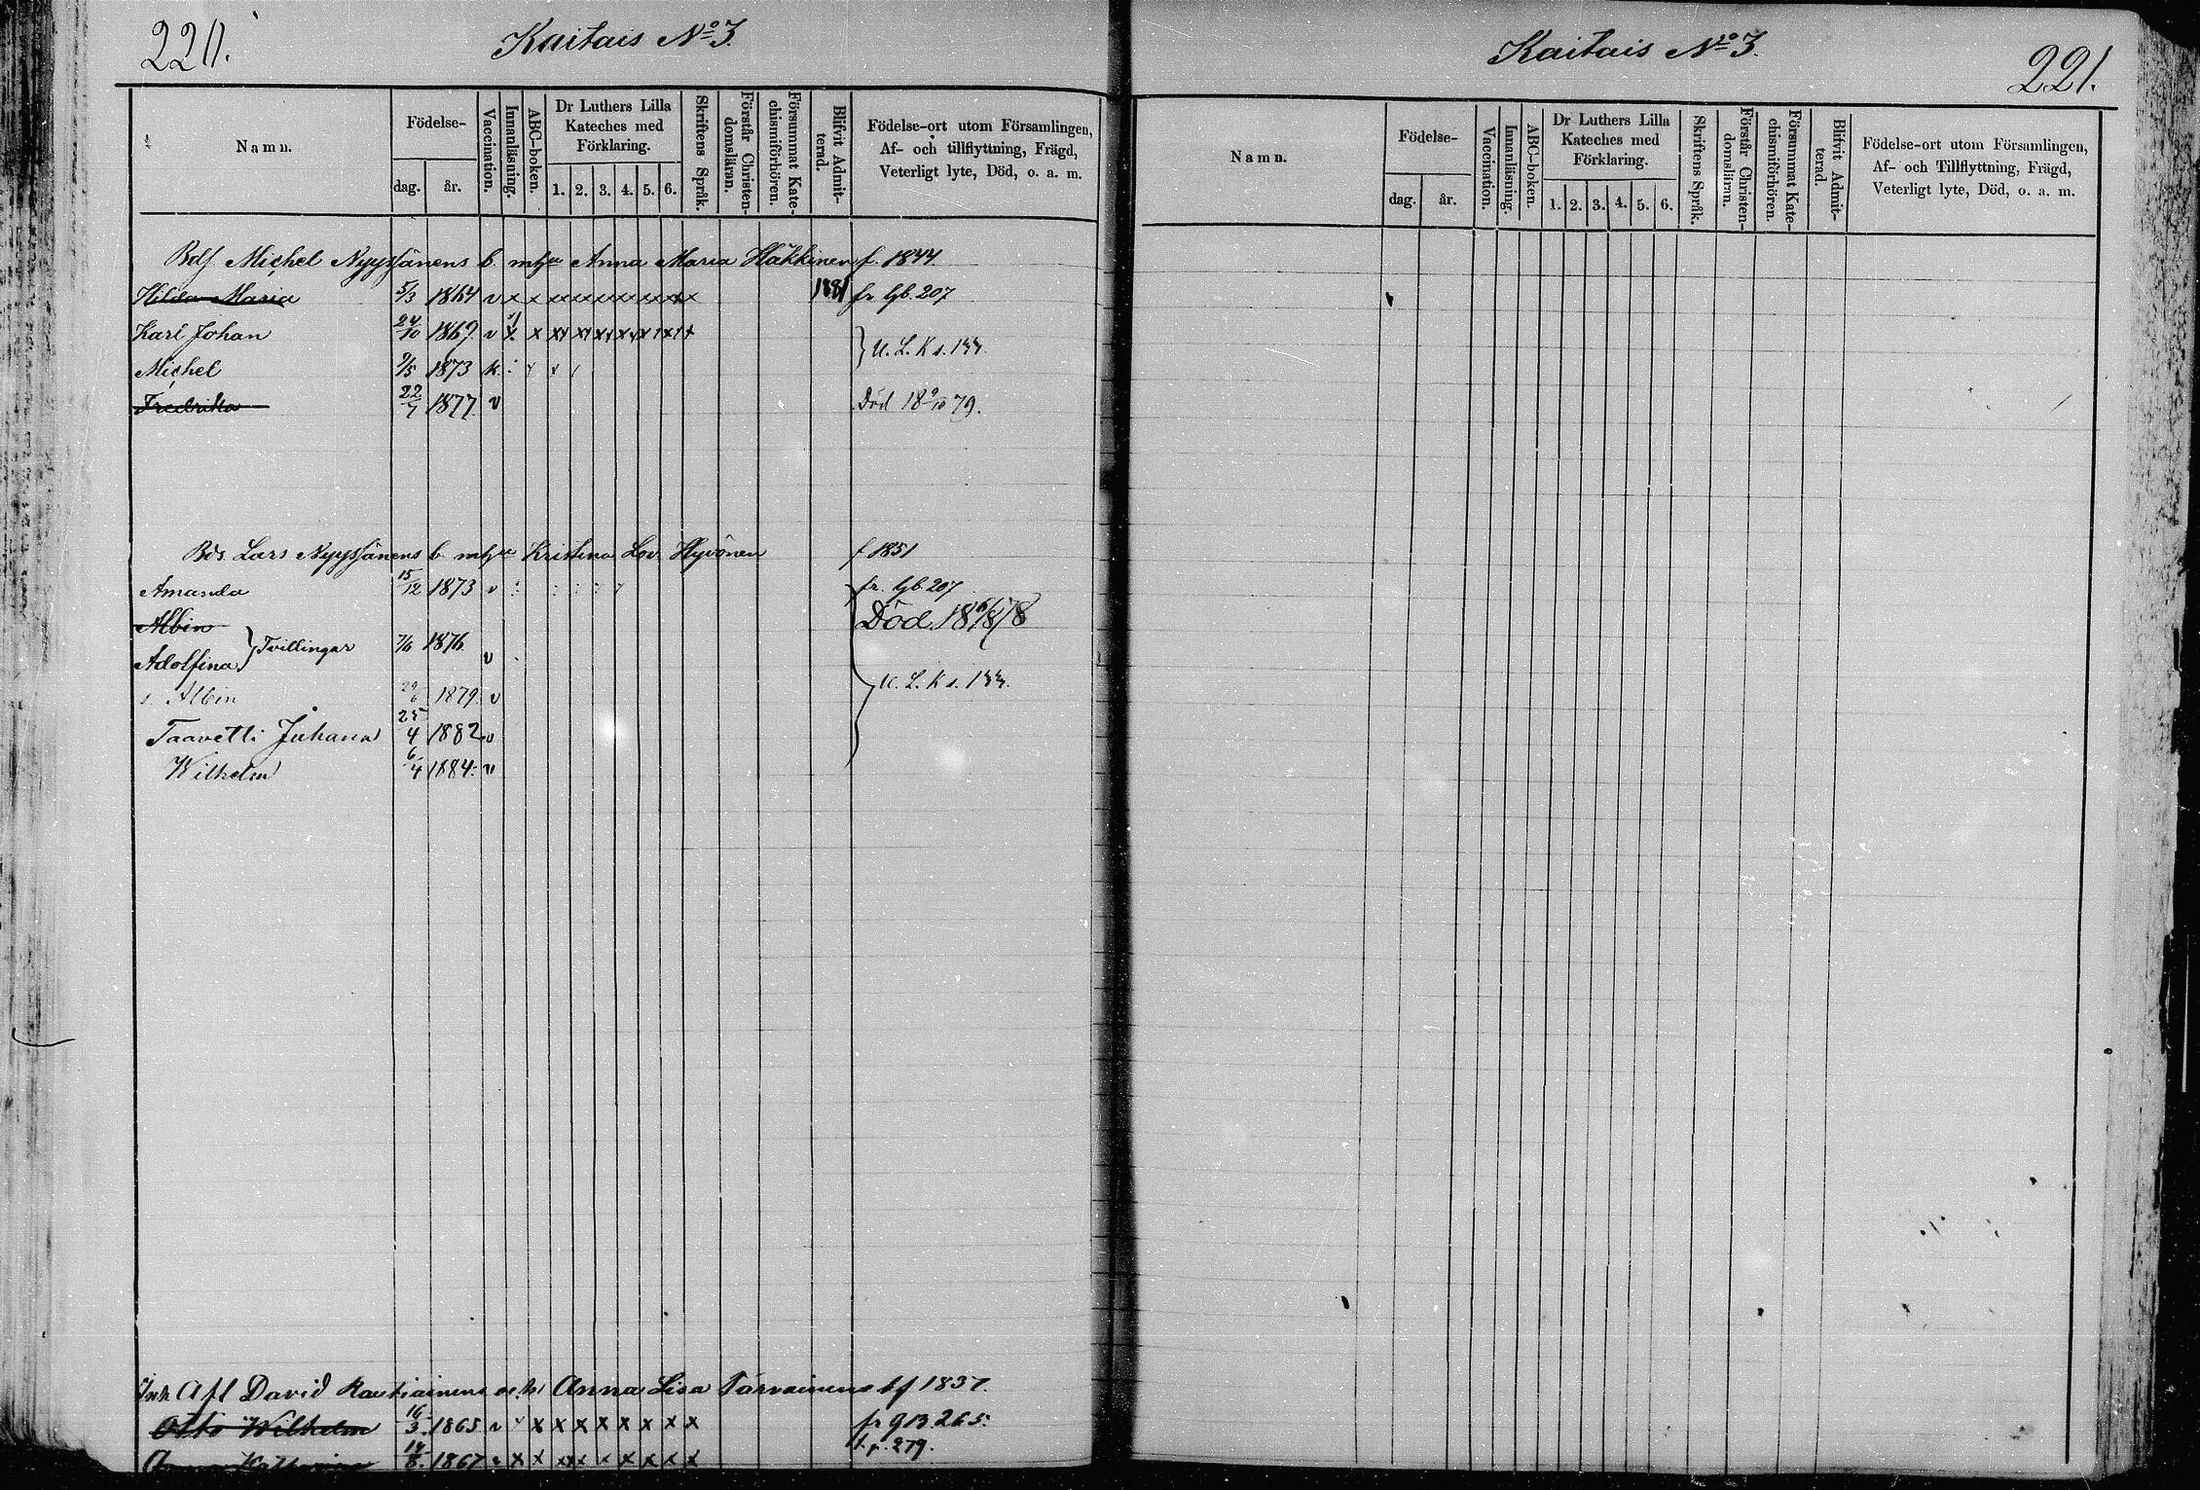 220.
Kaitais No 3.
Namn.
Födelse-
dag. år.
Vaccination.
Innanläsning.
ABC-boken.
Dr Luthers Lilla
Kateches med
Förklaring.
1. 2. 3. 4. 5. 6.
Skriftens Språk.
Förstår Christen-
domsläran.
Försummat Kate-
chismiförhören.
Blifvit Admit-
terad.
Födelse-ort utom Församlingen,
Af- och tillflyttning, Frägd,
Veterligt lyte, Död, o. a. m.
Michel Nyyssönens b. m hu Anna Maria Häkkinen f. 1844
Hilda Maria 5/3 1864 v x x xx xx xx xx xx xx x 1881 fr. gb. 207
Karl Johan 24/10 1869. v x x xx xx xx xx xx xx x
U. L. K s. 133.
Michel 9/5 1873
Fredrika 22/7 1877. v Död 18 9/10 79.
Lars Nyyssönens b. m hu Kristina Lov. Hyvönen f. 1851
Amanda 15/12 1873 v fr. gb. 207
Albin Död 18
Tvillingar 1876
Adolfina v
U. L. K s. 133.
s. Albin 29/6 1879. v
Taavetti Juhana 25/4 1882. v
Wilhelm 6/4 1884. v
Inh Afl David Rautiainens och Anna Lisa Tarvainens bf 1837.
Otto Wilhelm 16/3 1865 v v x x x x x x x x fr gB 265.
Anna Katharina 14/8 1867 279.
Kaitais No 3.
221.
Namn.
Födelse-
dag. år.
Vaccination.
Innanläsning.
ABC-boken.
Dr Luthers Lilla
Kateches med
Förklaring.
1. 2. 3. 4. 5. 6.
Skriftens Språk.
Förstår Christen-
domsläran.
Försummat Kate-
chismiförhören.
Blifvit Admit-
terad.
Födelse-ort utom Församlingen,
Af- och Tillflyttning, Frägd,
Veterligt lyte, Död, o. a. m.